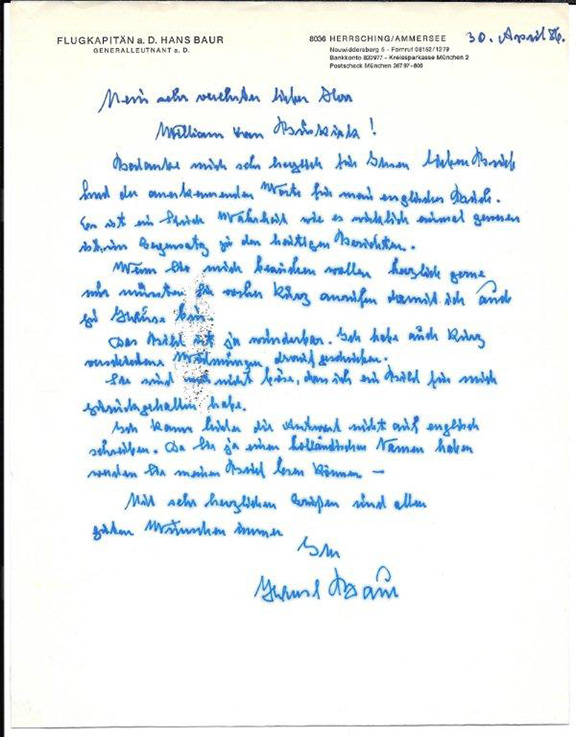 FLUGKAPITÄN a. D. HANS BAUR
GENERALLEUTNANT a. D.
8036 HERRSCHING/AMMERSEE
Neuwiddersberg 5 - Fernruf 08152/1279
Bankkonto 820977 - Kreissparkasse München 2
Postscheck München 36797-800
30. April 86.
Mein sehr verehrter lieber Herr
William van Buskirk!
Bedanke mich sehr herzlich für Ihren lieben Brief
und der anerkennenden Worte für mein englisches Buch.
Es ist ein Stück Wahrheit wie es wirklich einmal gewesen
ist, im Gegensatz zu den heutigen Berichten.
Wenn Sie mich besuchen wollen herzlich gerne
nur müssten Sie vorher kurz anrufen damit ich auch
zu Hause bin.
Das Bild ist ja wunderbar. Ich habe auch kurz
verschiedene Widmungen drauf geschrieben.
Sie sind mir nicht böse, das ich ein Bild für mich
zurückgehalten habe.
Ich kann leider die Antwort nicht auf englisch
schreiben. Da Sie ja einen holländischen Namen haben
werden Sie meinen Brief lesen können –
Mit sehr herzlichen Grüßen und allen
guten Wünschen immer
Ihr
Hans Baur